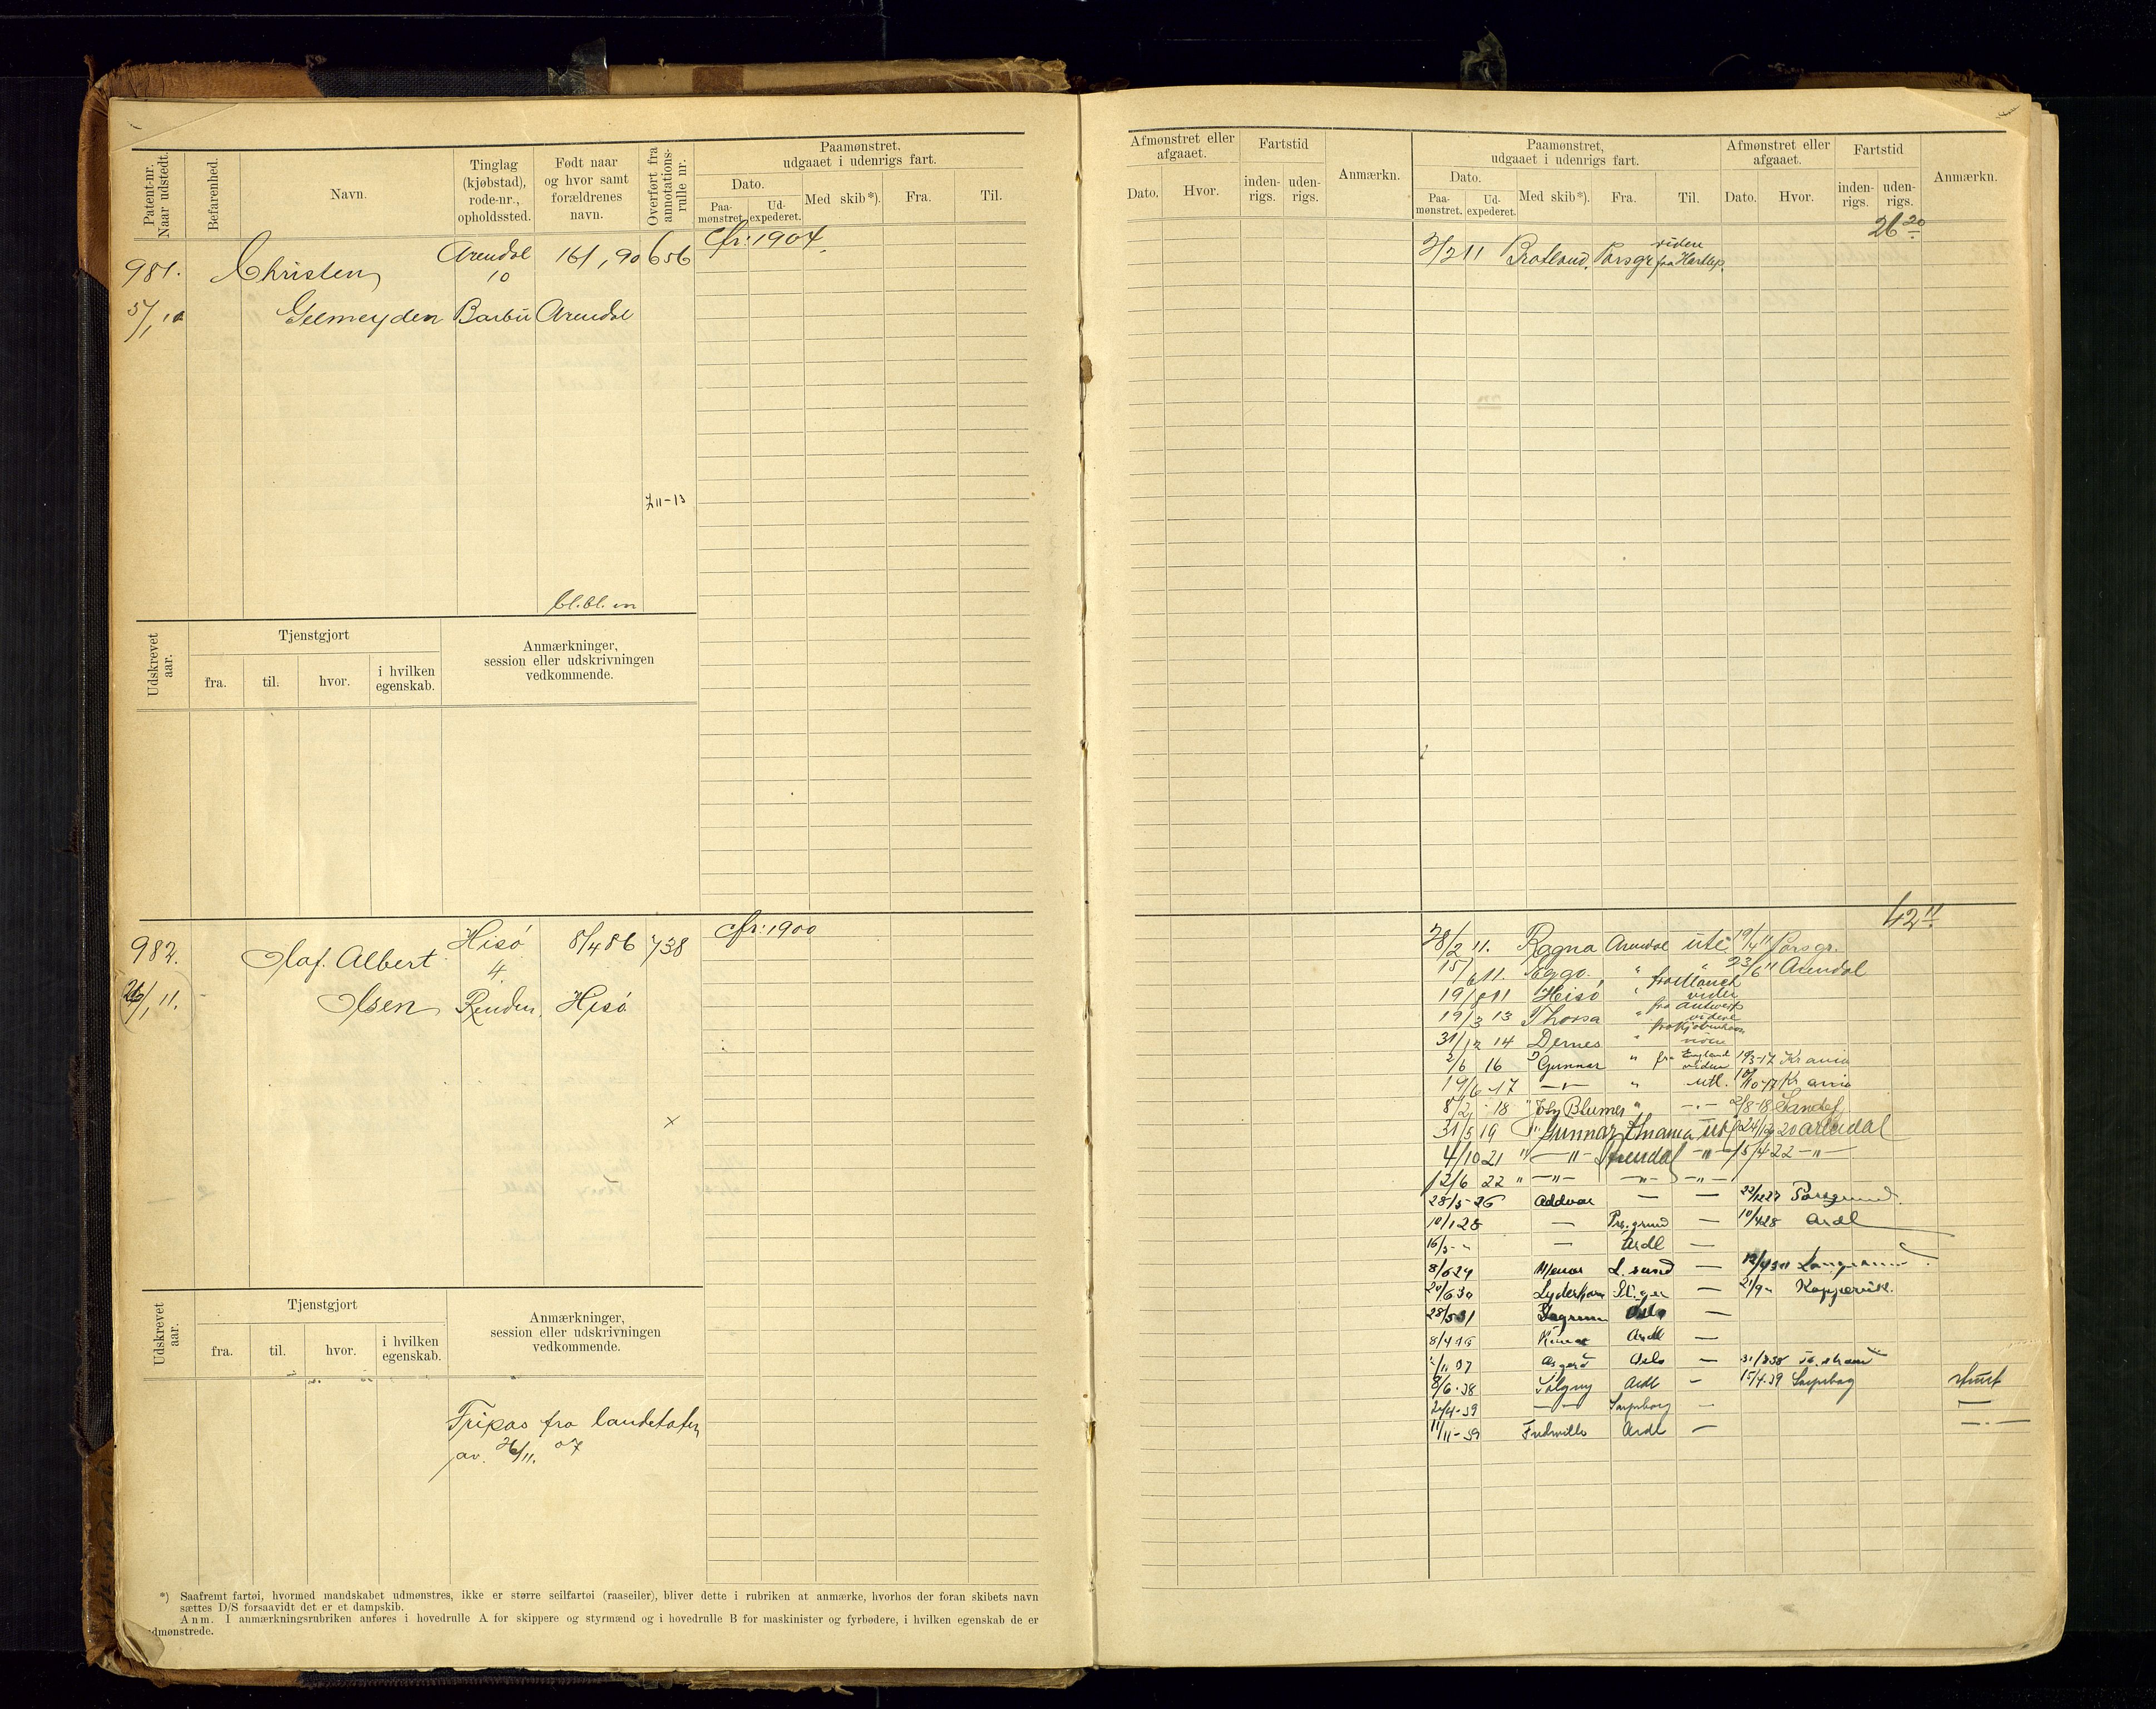 Patent-nr. Naar udstedt.
Befarenhed.
Navn.
Tinglag (kjøbstad), rode-nr., opholdssted.
Født naar og hvor samt forældrenes navn.
Overført fra annotations-rulle nr.
Paamønstret, udgaaet i udenrigs fart.
Dato.
Paa-mønstret. Ud-expederet.
Med skib*).
Fra.
Til.
981. Christen Arendal 16/1, 90 656 Cfr: 1904.
10
5/1, 10 Gelmeyden Barbu Arendal
Z 11-13
bl.bl. m
Udskrevet aar.
Tjenstgjort
fra. til. hvor. i hvilken egenskab.
Anmærkninger, session eller udskrivningen vedkommende.
982. Olaf Albert Hisö 8/4 86 738 Cfr: 1900
4
26/1, 11. Olsen Renden, Hisö
×
Udskrevet aar.
Tjenstgjort
fra. til. hvor. i hvilken egenskab.
Anmærkninger, session eller udskrivningen vedkommende.
Fripas fra landetaten
av. 26/11. 07
*) Saafremt fartøi, hvormed mandskabet udmønstres, ikke er større seilfartøi (raaseiler), bliver dette i rubriken at anmærke, hvorhos der foran skibets navn
sættes D/S forsaavidt det er et dampskib.
Anm. I anmærkningsrubriken anføres i hovedrulle A for skippere og styrmænd og i hovedrulle B for maskinister og fyrbødere, i hvilken egenskab de er
udmønstrede.
Afmønstret eller afgaaet.
Dato. Hvor.
Fartstid
inden-rigs. uden-rigs.
Anmærkn.
Paamønstret, udgaaet i udenrigs fart.
Dato.
Paa-mønstret. Ud-expederet.
Med skib*). Fra. Til.
Afmønstret eller afgaaet.
Dato. Hvor.
Fartstid
inden-rigs. uden-rigs.
Anmærkn.
26 20
Porsgr videre fra Hartlep.
42 11
28/2 11. Ragna Arendal utl. 19/4 11 Porsgr.
15/6 11. Eggo. " " 23/6 11 Arendal
19/8 11 Hisö "
videre
19/3 13 Thorsa " fra Antwerp
videre
31/12 14 Dernes " fra Kjøbenhavn
videre
2/6 16 Gunnar " fra England videre 19/3-17 Krania
19/6 -17 -"- " utl. Krania
8/2 -18 " Blumer " -"- 2/8-18 Sandef
31/5 19 " Gunnar Krania utl 20 Arendal
4/10 21 " -"- Arendal -"- 15/4 22 -"-
12/6 22 " -"- -"- -"-
28/5-26 Addvar — — Porsgrund
10/1 28 — Prs.grund — 10/4 28 Ardl
16/5 - " — Ardl —
8/6 29 L. sund —
20/6 30 Lyderhorn — 21/9 " Koppervik.
28/5 31 Oslo —
8/4 Ardl —
Asgerd Oslo —
8/6-38 Solgny Ardl — 15/4-39 Sarpsborg stuert
-"- Sarpsborg — —
11/11-39 Fredville Ardl — -"-